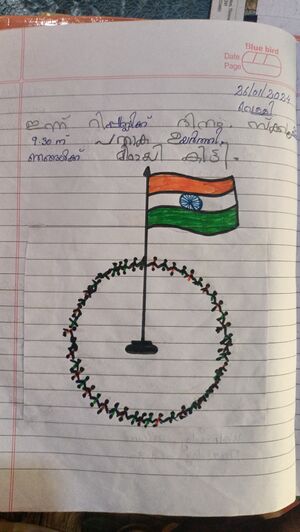 Blue bird
Date
Page
26/01/2024
വെള്ളി
ഇന്ന് റിപ്പബ്ലിക്ക് ദിനം. സ്കൂളിൽ
9:30 ന് പതാക ഉയർത്തി.
ഞങ്ങൾക്ക് മിഠായി കിട്ടി.